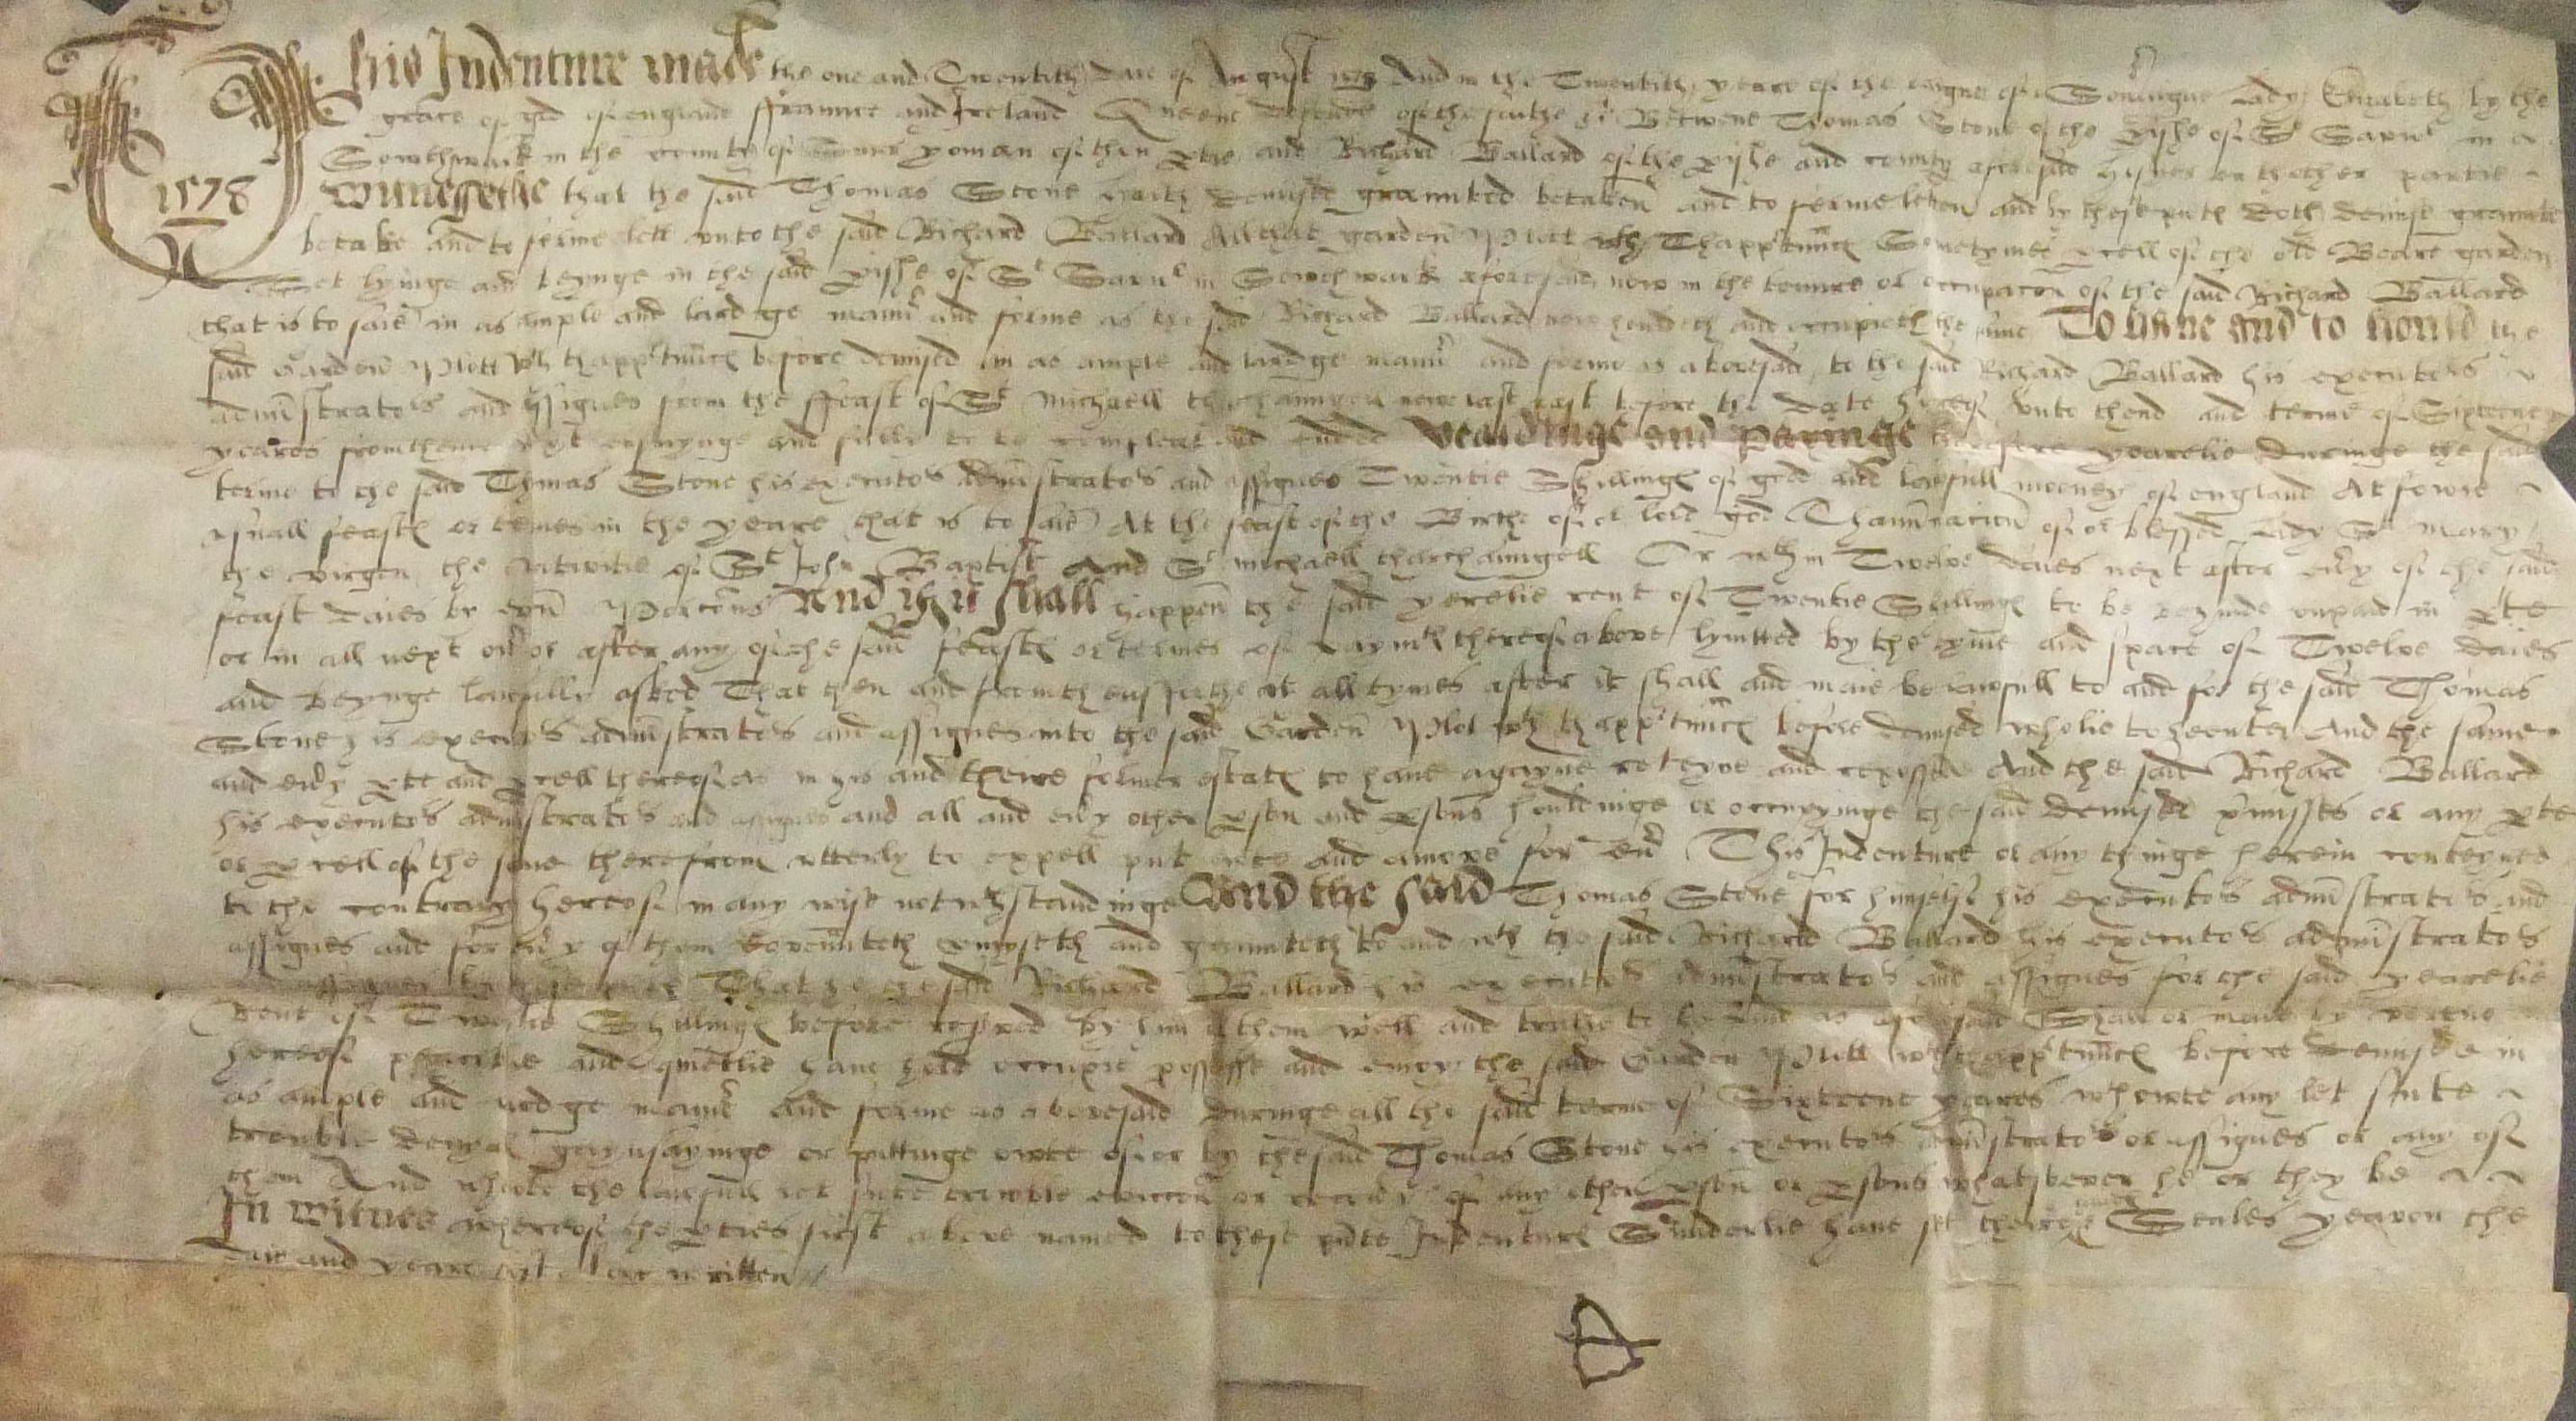 This Indenture made the one and Twentith daie of August 1578 And in the Twentith yeare of the raigne of or Soueraigne Lady Elizabeth by the
grace of god of england ffraunce and Ireland Queene defendor of the faithe &c Betwene Thomas Stone of the pishe of St Savior in
Sowthwark in the countye of Surr yoman of thon ptie and Richard Ballard of the pishe and county aforesaid on thother partie
1578
Witnessethe that the said Thomas Stone hath demised graunted betaken and to ferme letten and by these pntes doth demise graunte
betake and to ferme lett vnto the said Richard Ballard All that garden plott wth Thapptuncs Sometymes pcell of the old Beare garden
Set lyinge and beynge in the said pishe of St Savior in Sowthwark aforesaid now in the tenure or occupacon of the said Richard Ballard
that is to saie in as ample and lardge mannr and forme as the said Richard Ballard now houldeth and occupieth the same To haue and to hould the
said Garden plott wth thapptuncs before demised in as ample and lardge mannr and forme as aboresaid to the said Richard Ballard his executors
administrators and assignes from the ffeast of St Michaell tharchaungell now last past before the date hereof vnto thend and terme of Sixteene
yeares from thence next ensuynge and fully to be compleat and ended Yealdinge and Payinge therefore yearelie duringe the said
terme to the said Thomas Stone his executors administrators and assignes Twentie Shillings of good and lawfull mooney of england At fowre
vsuall feasts or termes in the yeare that is to saie At the feast of the Birthe of or lord god Thannunciacion of or blessed Lady St Mary
the virgin the Nativitie of St John Baptist And St Michaell tharchaungell Or wthin Twelve daies next after eury of the said
feast daies by even Porcions And if it shall happen the said yerelie rent of Twentie Shillings to be behynde vnpaid in pte
or in all next ouer or after any of the said feasts or termes of paymt thereof above lymitted by the tyme and space of Twelve daies
and beynge lawfully asked That then and from thensforthe at all tymes after it shall and maie be lawfull to and for the said Thomas
Stone his executors administrators and assignes into the said Garden Plot wth thapptuncs before demised wholie to reenter And the same
and eury pte and pcell thereof as in his and there former estate to haue agayne reteyne and reposse And the said Richard Ballard
his executors administrators and assignes and all and eury other pson and psons houldinge or occupyinge the said demised pmisses or any pte
or pcell of the same therefrom vtterly to expell put owte and amove for euer This Indenture or any thinge herein conteyned
to the contrary hereof in any wise notwthstandinge And the said Thomas Stone for himself his executors administrators and
assignes and for eury of them Covenñteth pmyseth and graunteth to and wth the said Richard Ballard his executors administrators
That he the said Richard Ballard his executors administrators and assignes for the said yearelie
Rent of Twentie Shillings before reserved by him or them well and trulie to be paid as aforesaid Shall or maie by vertue
hereof peaceablie and quietlie haue hold occupie possesse and enioy the said Garden Plott wth thapptuncs before demised in
as ample and lardge mannr and forme as aboresaid duringe all the said terme of Sixteene yeares wthowte any let sute
trouble denyal gaynsayinge or puttinge owte of or by the said Thomas Stone his executors administrators or assignes or any of
them And wthowte the lawfull let sute trowble eviccon or of any other pson or psons whatsoever he or they be
In witnes whereof the pties first above named to these pnte Indentures Sunderlie haue set there Seales yeaven the
daie and yeare first above written